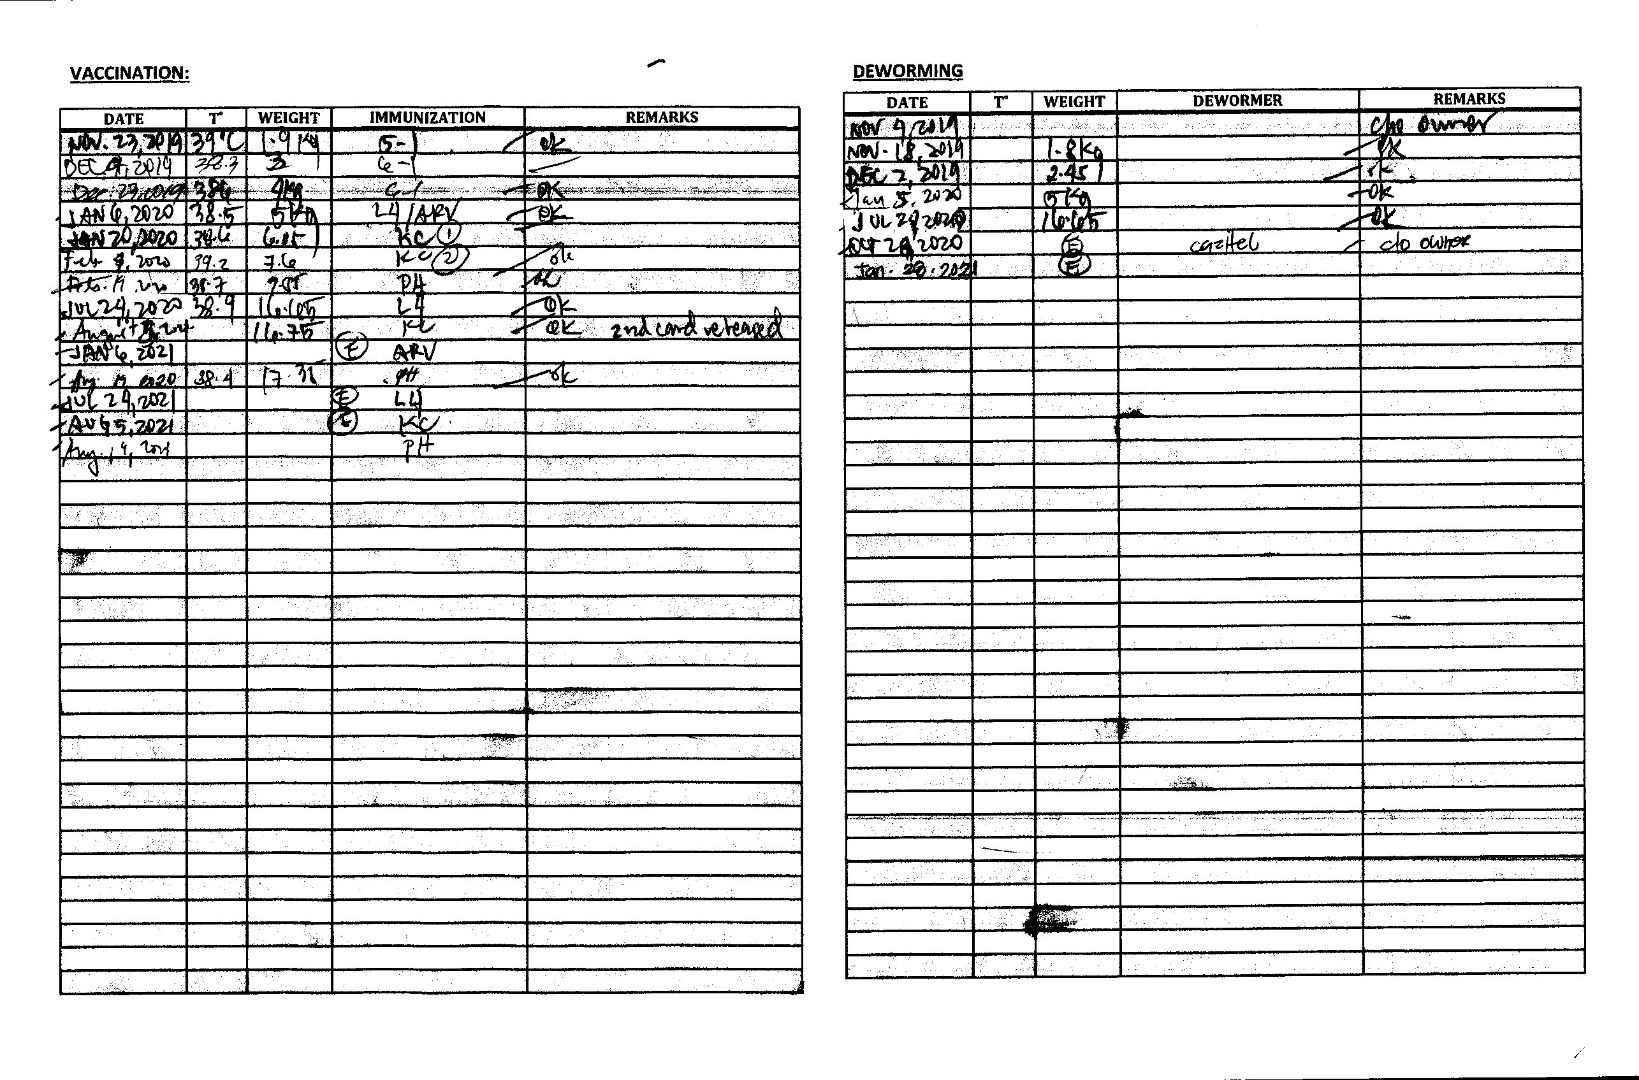 VACCINATION:
DATE T° WEIGHT IMMUNIZATION REMARKS
NOV. 23, 2019 39°C 1.9 kg 5-1 OK
DEC 9, 2019 38.3 3 6-1
Dec. 23, 2019 38.6 4kg 6-1 OK
JAN 6, 2020 38.5 5kg L4/ARV OK
JAN 20, 2020 38.6 6.05 KC 1
Feb 2020 39.2 7.6 KC 2 ok
38.7 PH ok
JUL 24, 2020 38.9 16.65 L4 OK
August 16.75 KC OK 2nd card released
JAN 6, 2021 E ARV
Aug. 19 2020 38.4 PH ok
JUL 24, 2021 E L4
AUG 5, 2021 E KC
Aug. 19, PH
DEWORMING
DATE T° WEIGHT DEWORMER REMARKS
NOV 9, 2019 c/o owner
NOV. 18, 2019 1.8kg OK
DEC 2, 2019 2.45 ok
Jan 5, 2020 5kg OK
JUL 2020 16.65 OK
OCT 2020 E c/o owner
Jan. 28. 2021 E